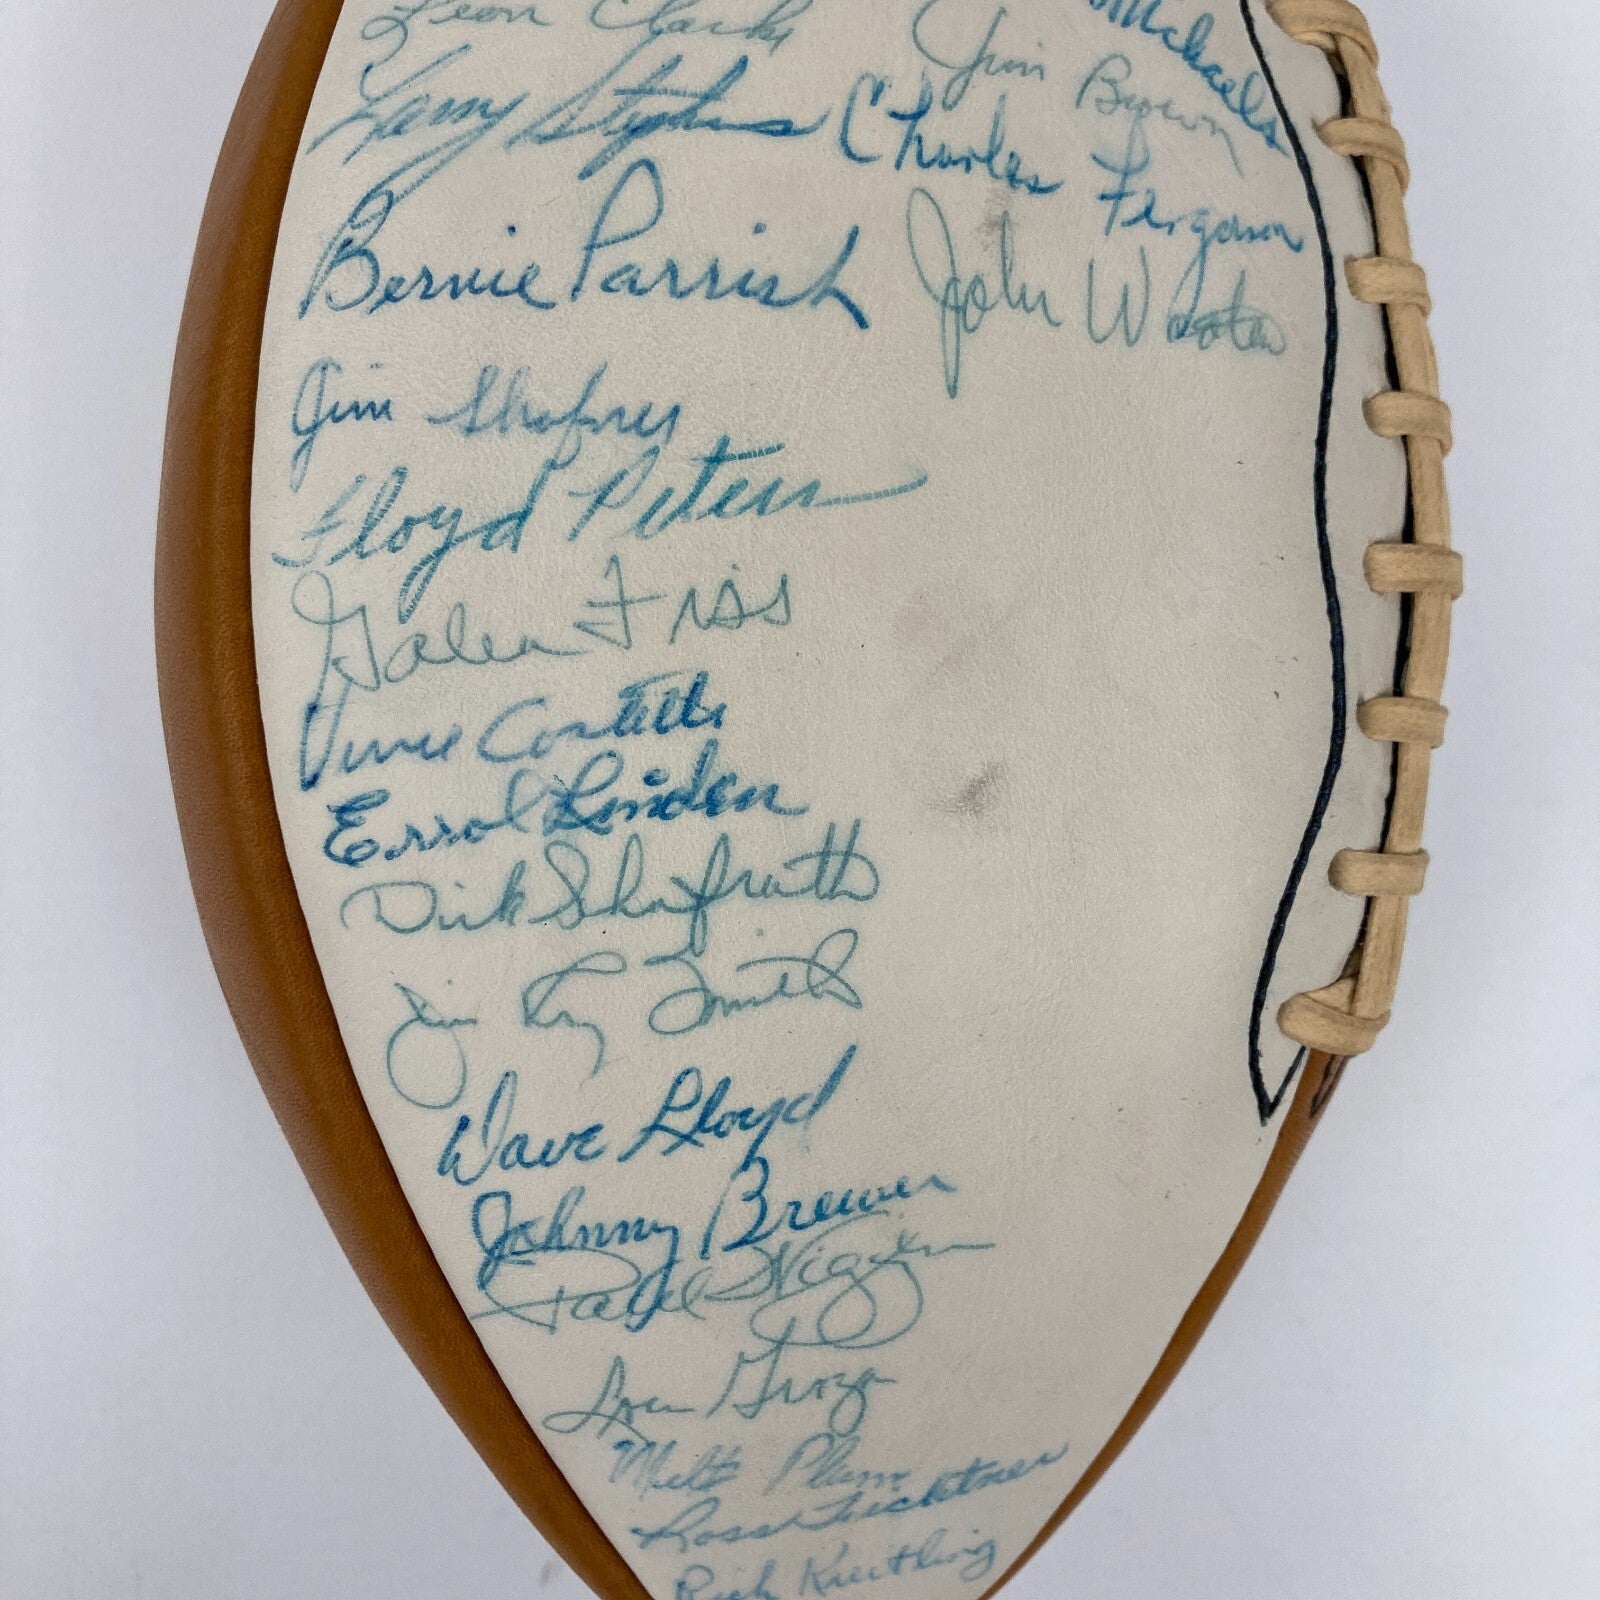 Leon Clarke
Michaels
Jim Brown
Larry Stephens
Charles Ferguson
Bernie Parrish
John Wooten
Jim Shofner
Floyd Peters
Galen Fiss
Vince Costello
Errol Linden
Dick Schafrath
Jim Ray Smith
Dave Lloyd
Johnny Brewer
Paul Wiggin
Lou Groza
Milt Plum
Ross Fichtner
Rich Kreitling